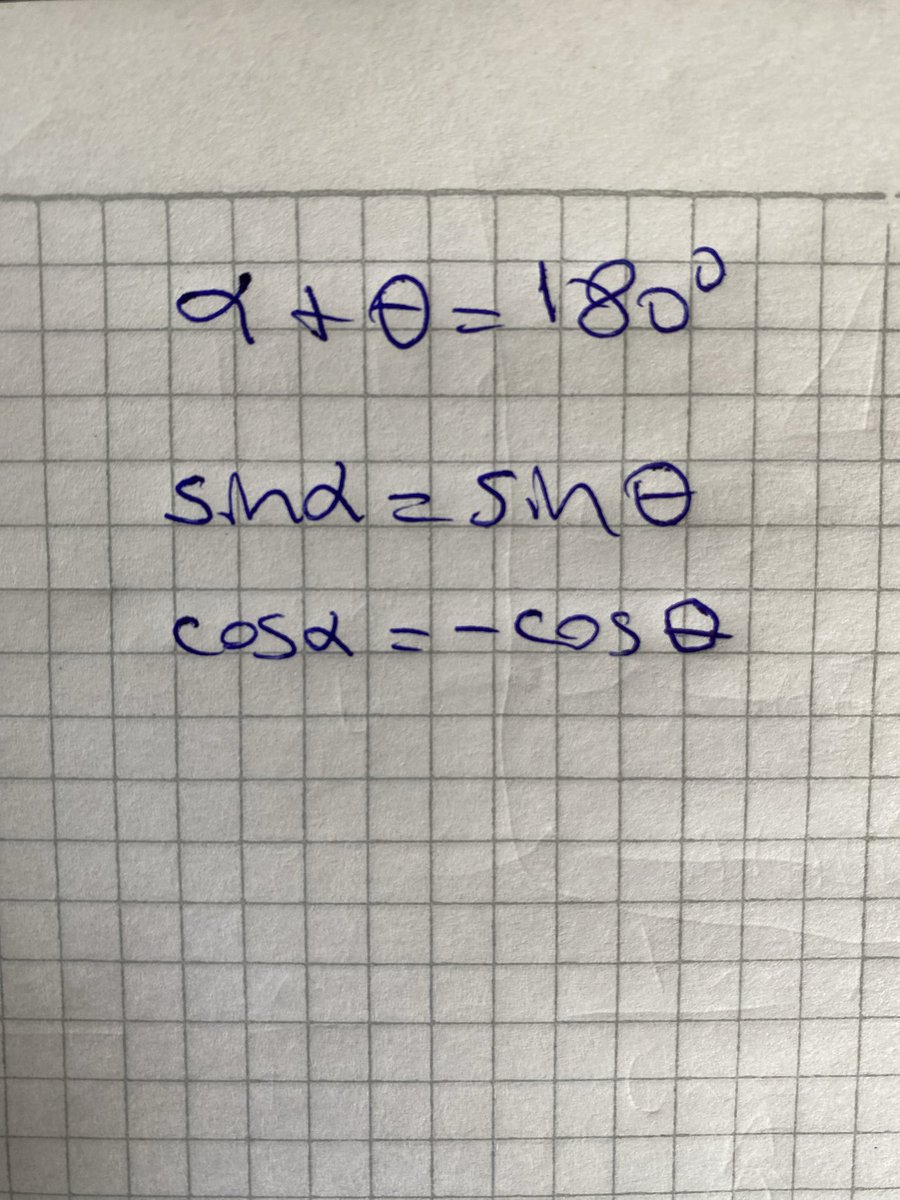 α + θ = 180°
sinα = sin θ
cosα = -cos θ